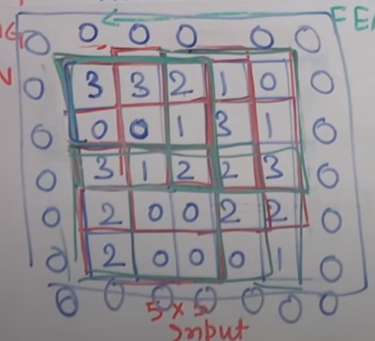 0 0 0 0 0 0 FE
0 3 3 2 1 0 0
N 0 0 0 1 3 1 0
0 3 1 2 2 3 0
0 2 0 0 2 2 0
0 2 0 0 0 1 0
0 0 0 0 0 0 0
5 x 5
Input